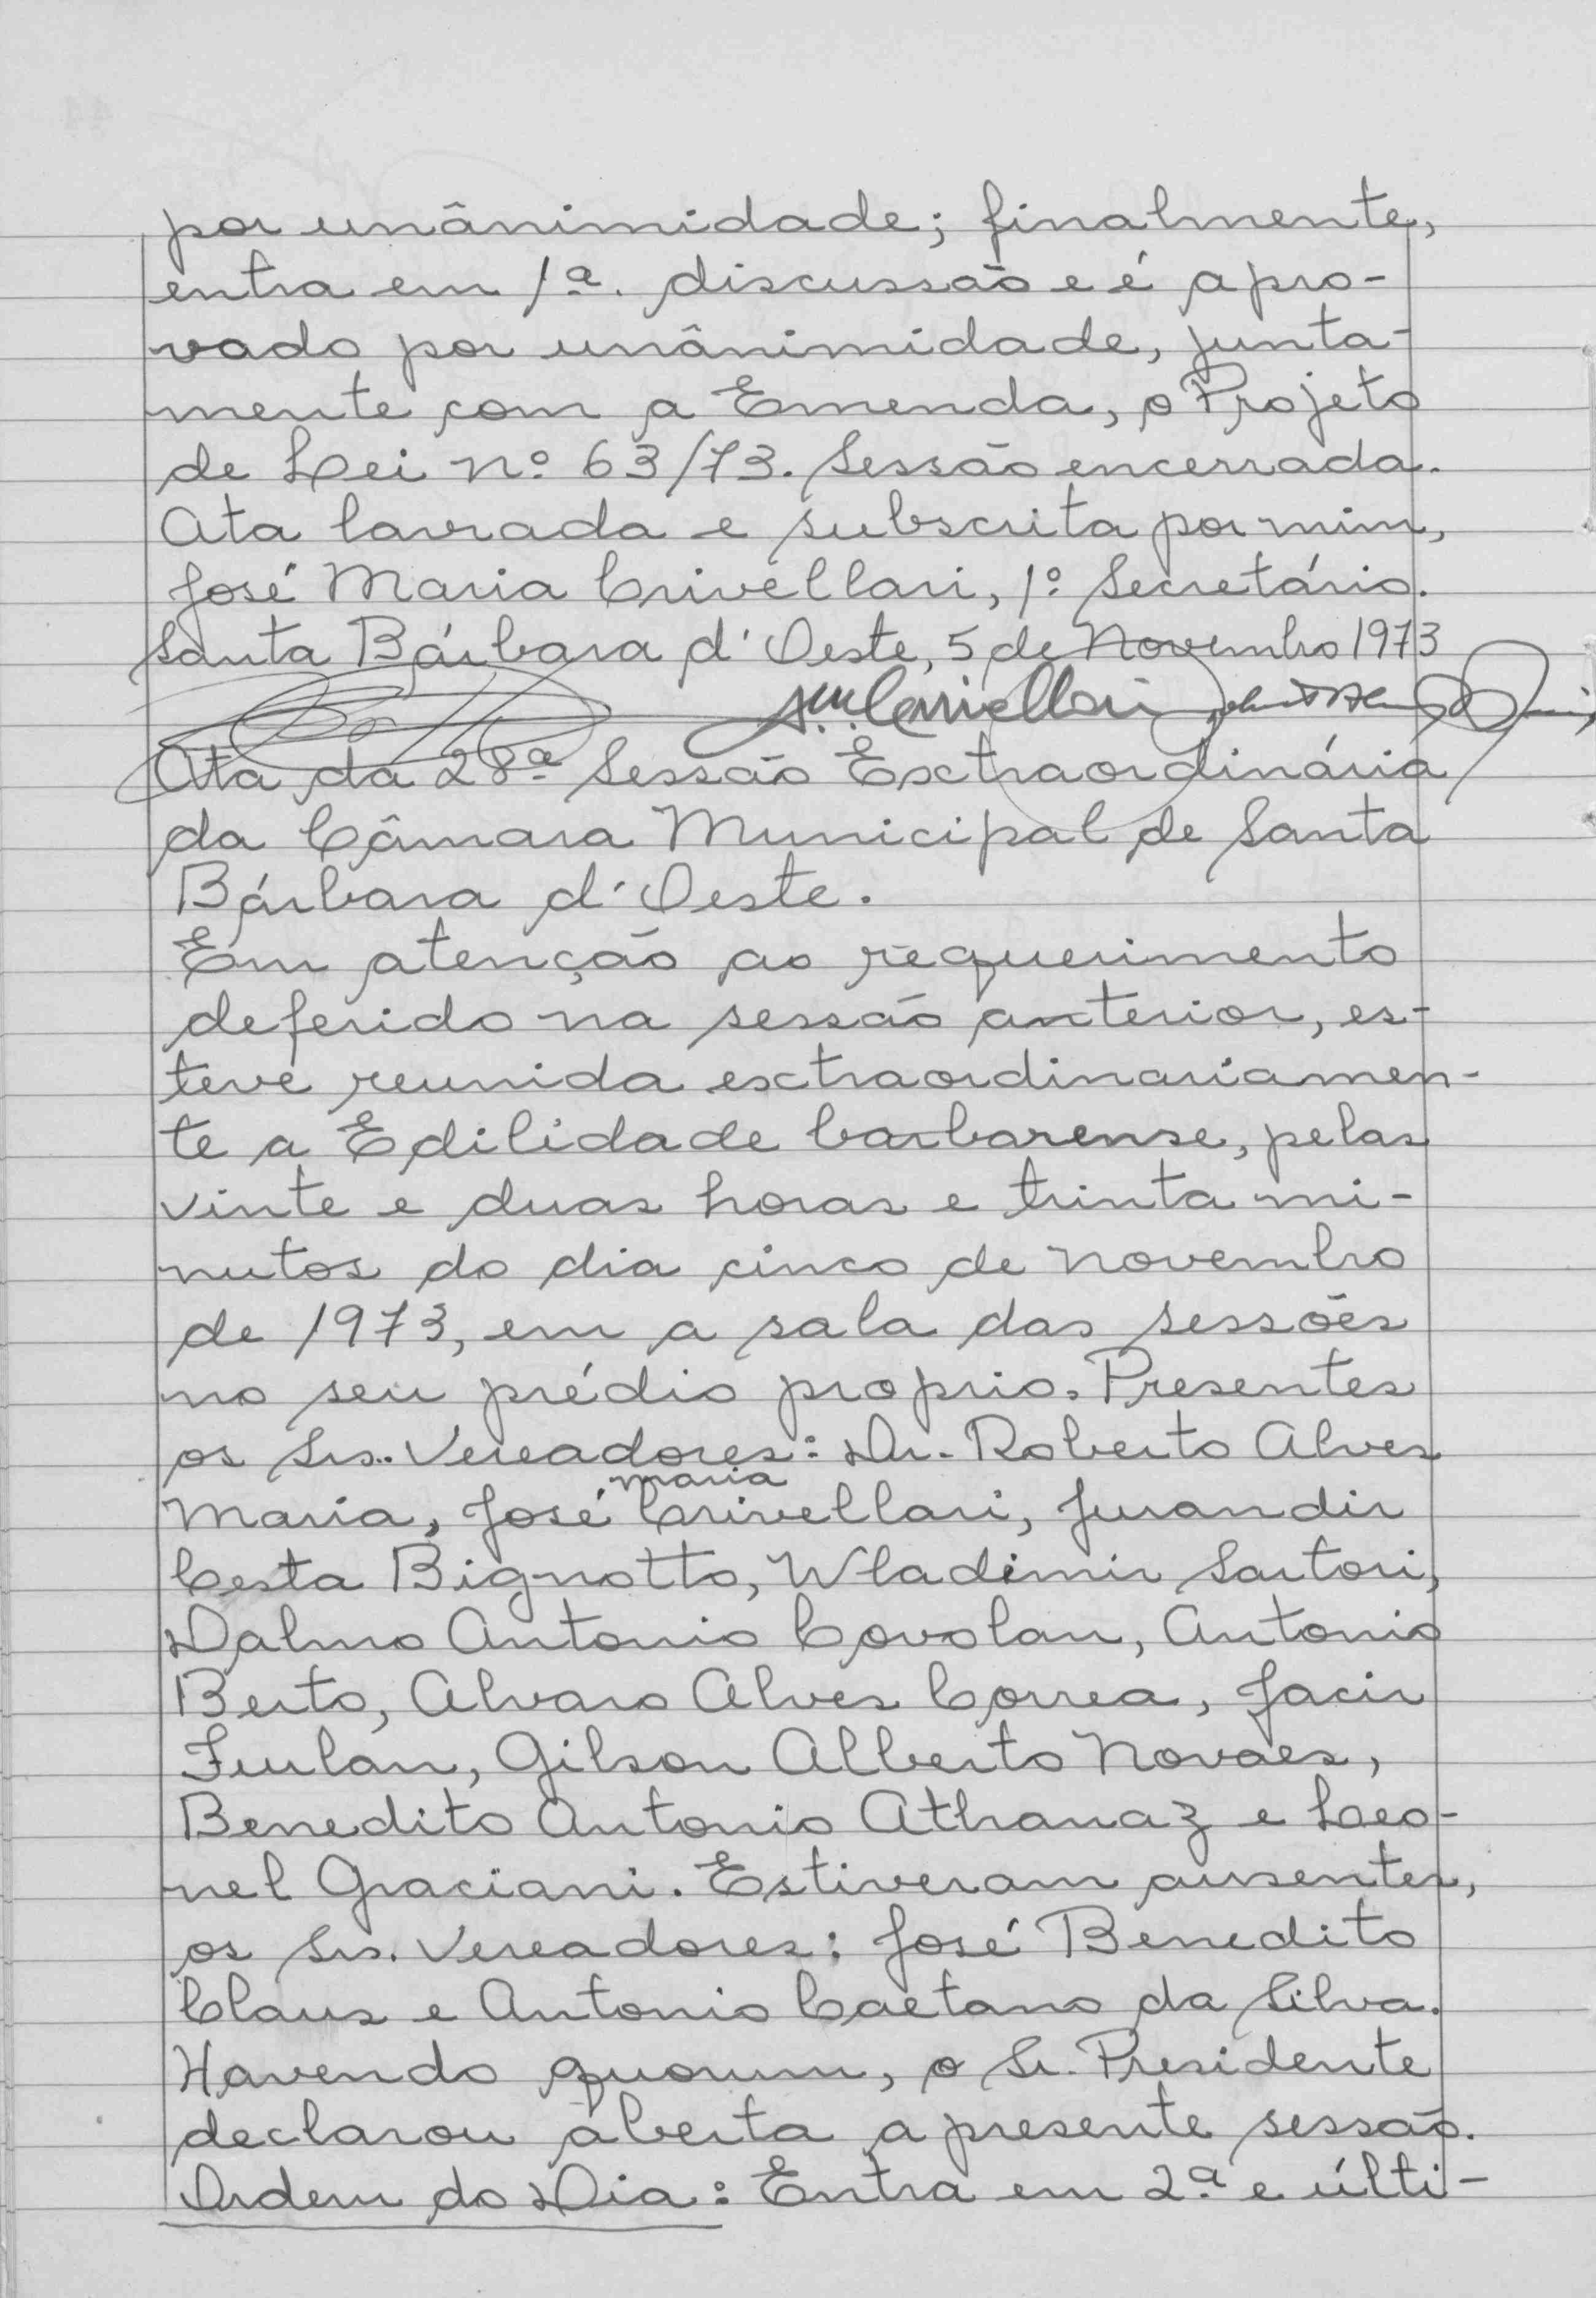 por unânimidade; finalmente,
entra em 1ª. discussão e é apro-
vado por unânimidade, junta-
mente com a Emenda, o Projeto
de Lei nº 63/73. Sessão encerrada.
Ata lavrada e subscrita por mim,
José Maria Crivellari, 1º Secretário.
Santa Bárbara d'Oeste, 5 de Novembro 1973
Ata da 28ª Sessão Extraordinária
da Câmara Municipal de Santa
Bárbara d'Oeste.
Em atenção ao requerimento
deferido na sessão anterior, es-
teve reunida extraordinariamen-
te a Edilidade barbarense, pelas
vinte e duas horas e trinta mi-
nutos do dia cinco de novembro
de 1973, em a sala das sessões
no seu prédio proprio. Presentes
os Srs. Vereadores: Dr. Roberto Alves
Maria, José Maria Crivellari, Jurandir
Cesta Bignotto, Wladimir Sartori,
Dalmo Antonio Covolan, Antonio
Berto, Alvaro Alves Correa, Jacir
Furlan, Gilson Alberto Novaes,
Benedito Antonio Athanaz e Leo-
nel Graciani. Estiveram ausentes,
os Srs. Vereadores: José Benedito
Claus e Antonio Caetano da Silva.
Havendo quorum, o Sr. Presidente
declarou aberta a presente sessão.
Ordem do Dia: Entra em 2ª e últi-